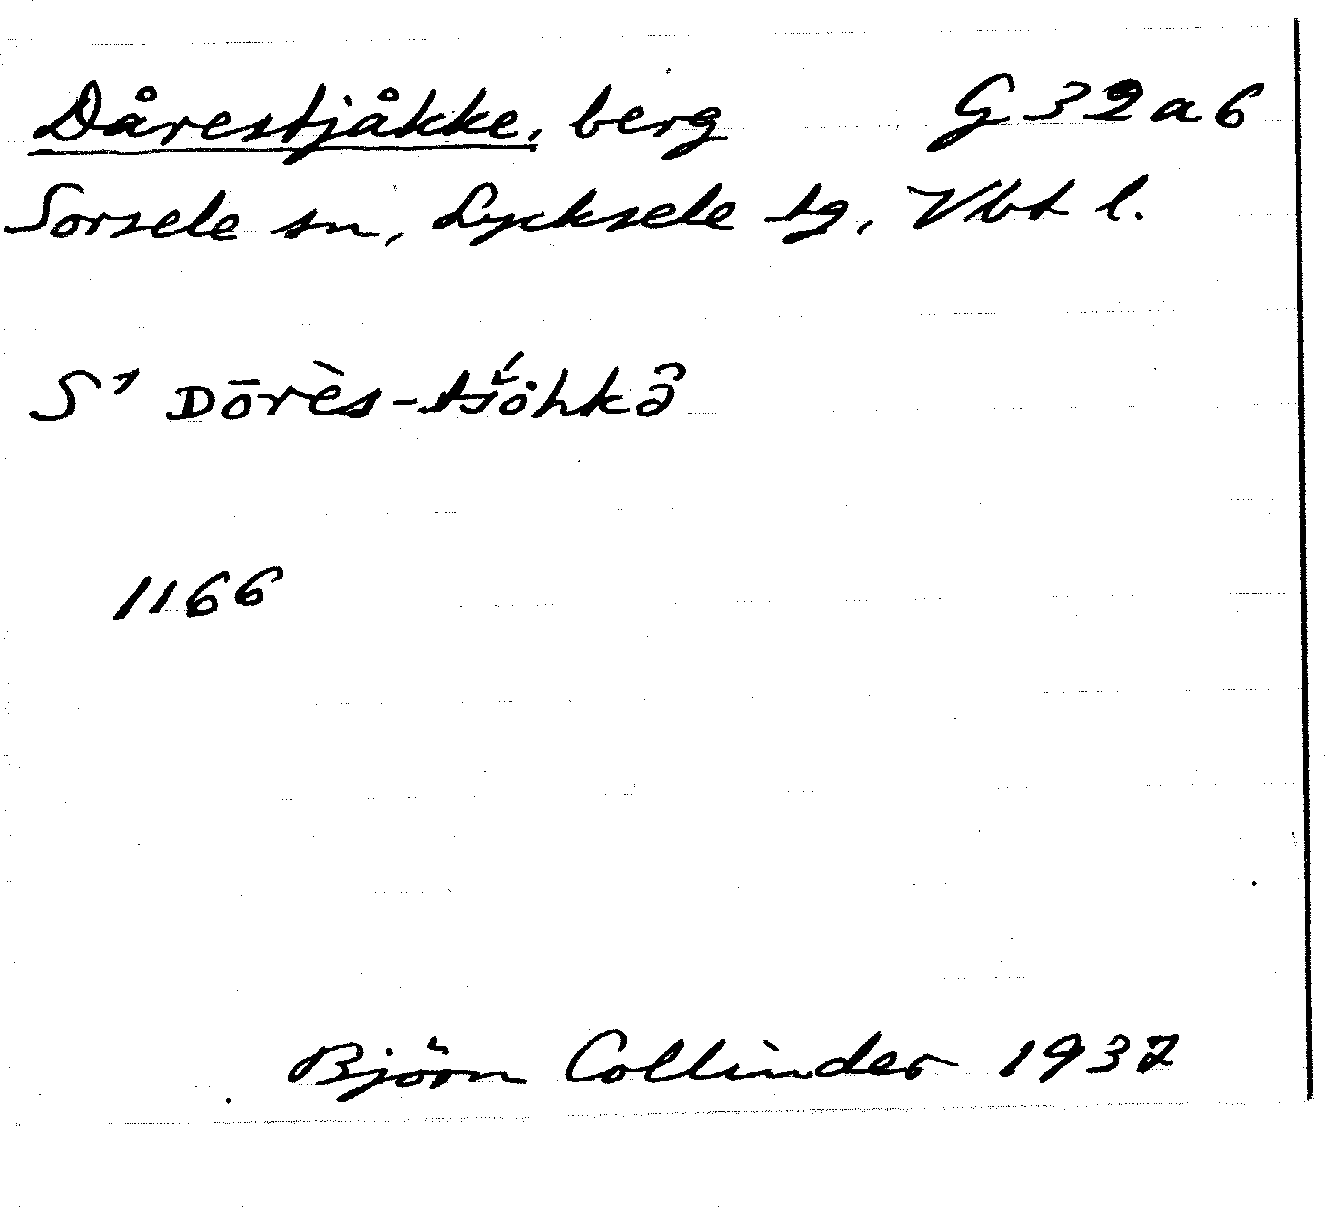 Dårestjåkke, berg G 32 a 6
Sorsele sn, Lycksele tg, Vbt l.
S¹ Dōrès-tšö̀hkə̂
1166
Björn Collinder 1937